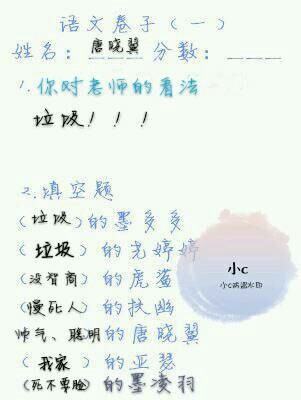 语文卷子（一）
姓名：唐晓翼 分数：___
1.你对老师的看法
垃圾！！！
2.填空题
（垃圾）的墨多多
（垃圾）的尧婷婷
（没智商）的虎鲨
（慢死人）的扶幽
小c
小c防盗水印
帅气、聪明的唐晓翼
（我家）的亚瑟
（死不要脸）的墨凌羽